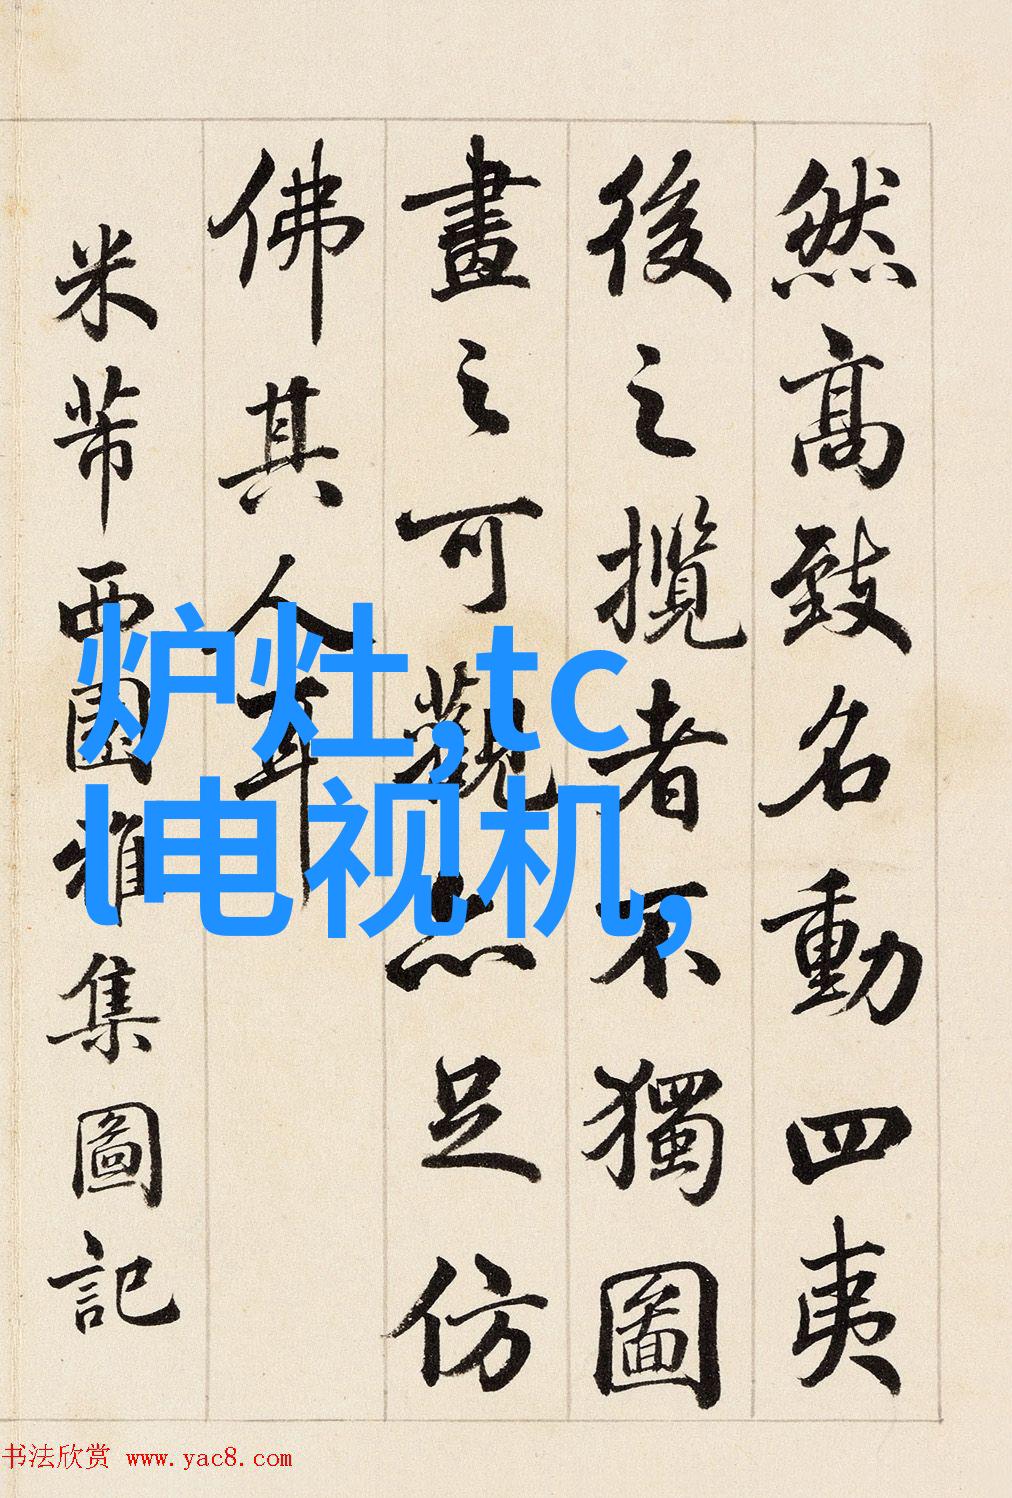 然高致名動四夷
後之攬者不獨圖
畫之可觀亦足仿
佛其人耳
米芾西園雅集圖記
炉灶,tc
l电视机,
书法欣赏 www.yac8.com